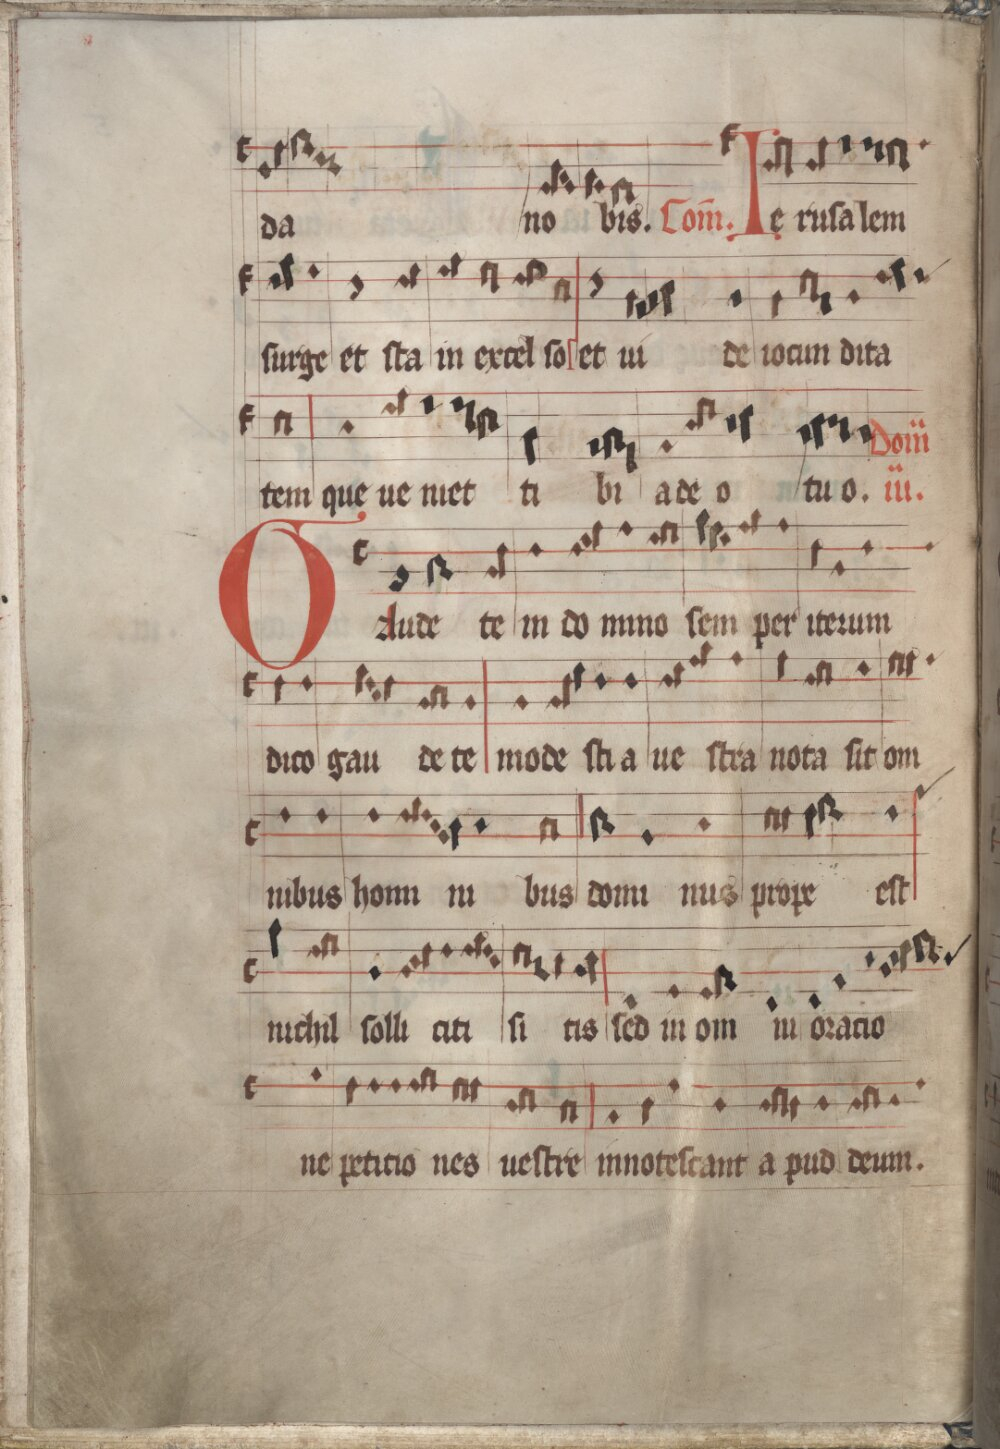 da no bis. Com̄. Ie rusalem
surge et sta in excel so et ui de iocun dita
tem que ue niet ti bi a deo tuo. Dom̄ iii.
Gaude te in do mino sem per iterum
dico gau de te mode sti a ue stra nota sit om
nibus homi ni bus domi nus prope est
nichil solli citi si tis sed in om ni oracio
ne peticio nes uestre innotescant a pud deum.